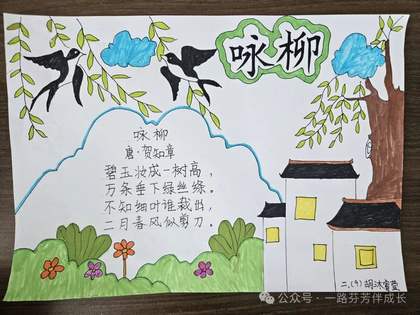 咏柳
咏柳
唐·贺知章
碧玉妆成一树高，
万条垂下绿丝绦。
不知细叶谁裁出，
二月春风似剪刀。
二、(9) 胡沐
公众号 · 一路芬芳伴成长